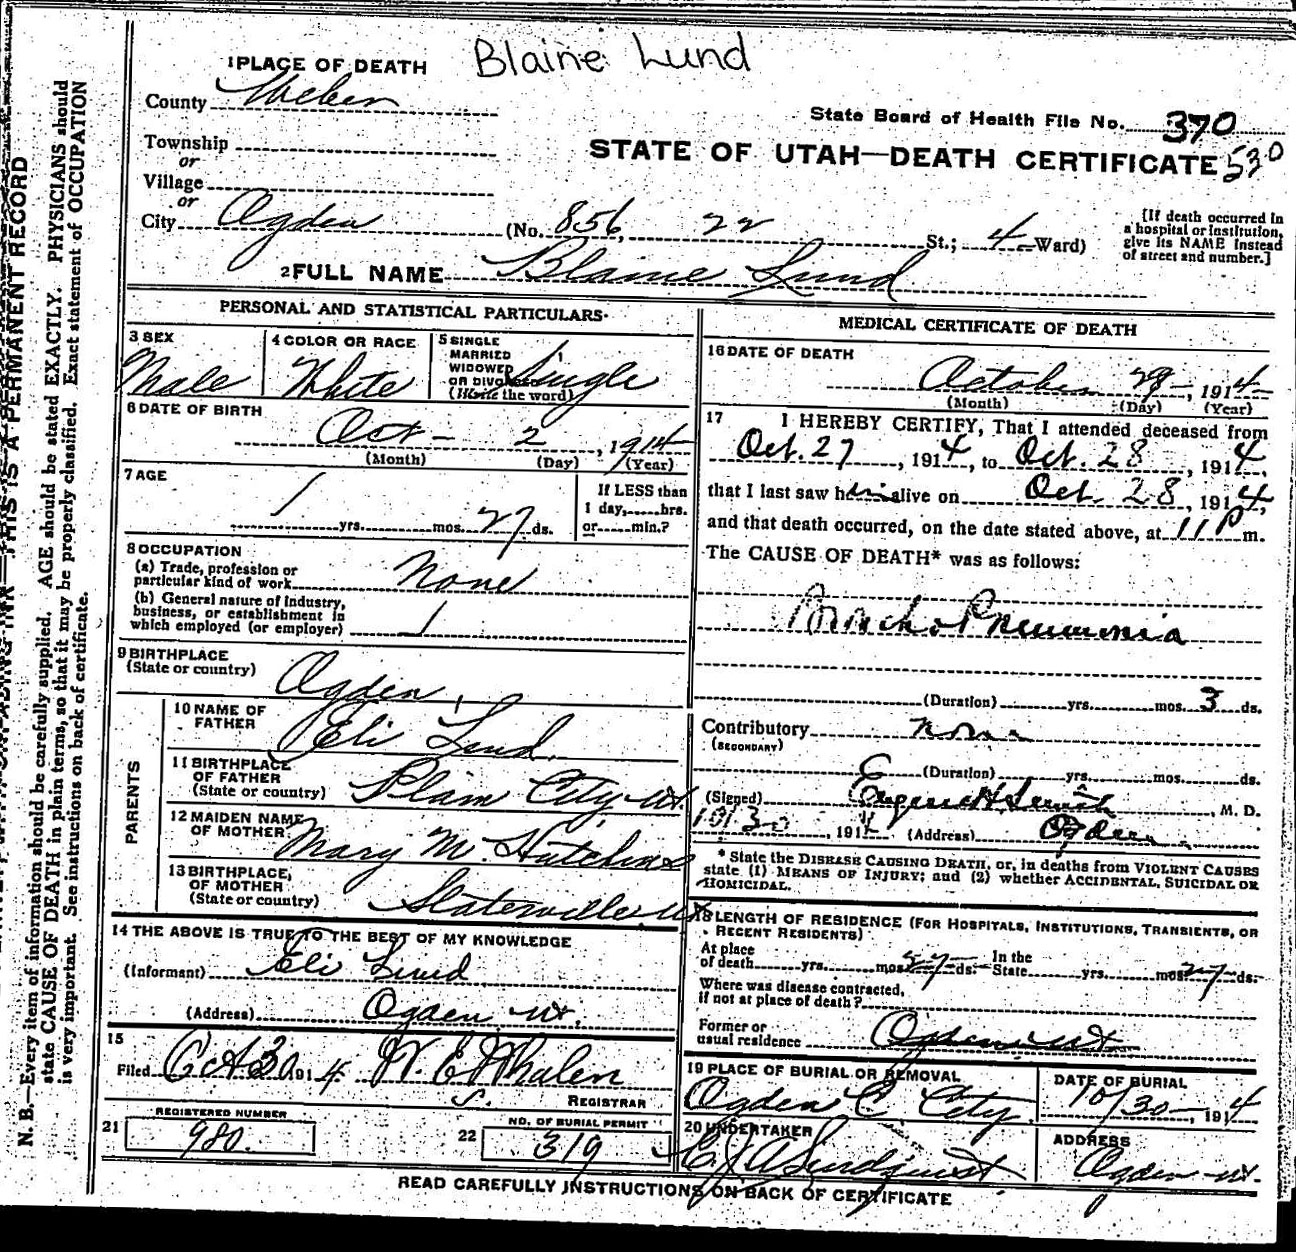 Blaine Lund
1 PLACE OF DEATH
County Weber
State Board of Health File No. 370
Township
or
STATE OF UTAH—DEATH CERTIFICATE 530
Village
or
City Ogden (No. 856, 22 St.; 4 Ward)
[If death occurred in
a hospital or institution,
give its NAME instead
of street and number.]
2 FULL NAME Blaine Lund
PERSONAL AND STATISTICAL PARTICULARS
3 SEX
Male
4 COLOR OR RACE
White
5 SINGLE
MARRIED
WIDOWED
OR DIVORCED
(Write the word)
Single
6 DATE OF BIRTH
Oct - 2, 1914
(Month) (Day) (Year)
7 AGE
yrs. mos. 27 ds.
If LESS than
1 day, hrs.
or min.?
8 OCCUPATION
(a) Trade, profession or
particular kind of work None
(b) General nature of industry,
business, or establishment in
which employed (or employer)
9 BIRTHPLACE
(State or country) Ogden
PARENTS
10 NAME OF
FATHER Eli Lund.
11 BIRTHPLACE
OF FATHER
(State or country) Plain City Ut.
12 MAIDEN NAME
OF MOTHER Mary M. Hutchins
13 BIRTHPLACE,
OF MOTHER
(State or country) Slaterville Ut
14 THE ABOVE IS TRUE TO THE BEST OF MY KNOWLEDGE
(Informant) Eli Lund
(Address) Ogden Ut.
15
Filed Oct 30 1914 W. E. Whalen
REGISTRAR
21 REGISTERED NUMBER
980.
22 NO. OF BURIAL PERMIT
319
MEDICAL CERTIFICATE OF DEATH
16 DATE OF DEATH
October 28, 1914
(Month) (Day) (Year)
17 I HEREBY CERTIFY, That I attended deceased from
Oct. 27, 1914, to Oct. 28, 1914,
that I last saw him alive on Oct. 28, 1914,
and that death occurred, on the date stated above, at 11 P m.
The CAUSE OF DEATH* was as follows:
Broncho Pneumonia
(Duration) yrs. mos. 3 ds.
Contributory none
(SECONDARY)
(Duration) yrs. mos. ds.
(Signed) Eugene H. Smith, M. D.
10/30, 1914 (Address) Ogden
* State the DISEASE CAUSING DEATH, or, in deaths from VIOLENT CAUSES
state (1) MEANS OF INJURY; and (2) whether ACCIDENTAL, SUICIDAL OR
HOMICIDAL.
18 LENGTH OF RESIDENCE (FOR HOSPITALS, INSTITUTIONS, TRANSIENTS, OR
RECENT RESIDENTS)
At place
of death yrs. mos. 27 ds. In the State yrs. mos. 27 ds.
Where was disease contracted,
if not at place of death?
Former or
usual residence Ogden Ut
19 PLACE OF BURIAL OR REMOVAL
Ogden C City
DATE OF BURIAL
10/30 1914
20 UNDERTAKER
C. J. A. Lindquist
ADDRESS
Ogden Ut.
READ CAREFULLY INSTRUCTIONS ON BACK OF CERTIFICATE
THIS IS A PERMANENT RECORD
N. B.—Every item of information should be carefully supplied. AGE should be stated EXACTLY. PHYSICIANS should
state CAUSE OF DEATH in plain terms, so that it may be properly classified. Exact statement of OCCUPATION
is very important. See instructions on back of certificate.